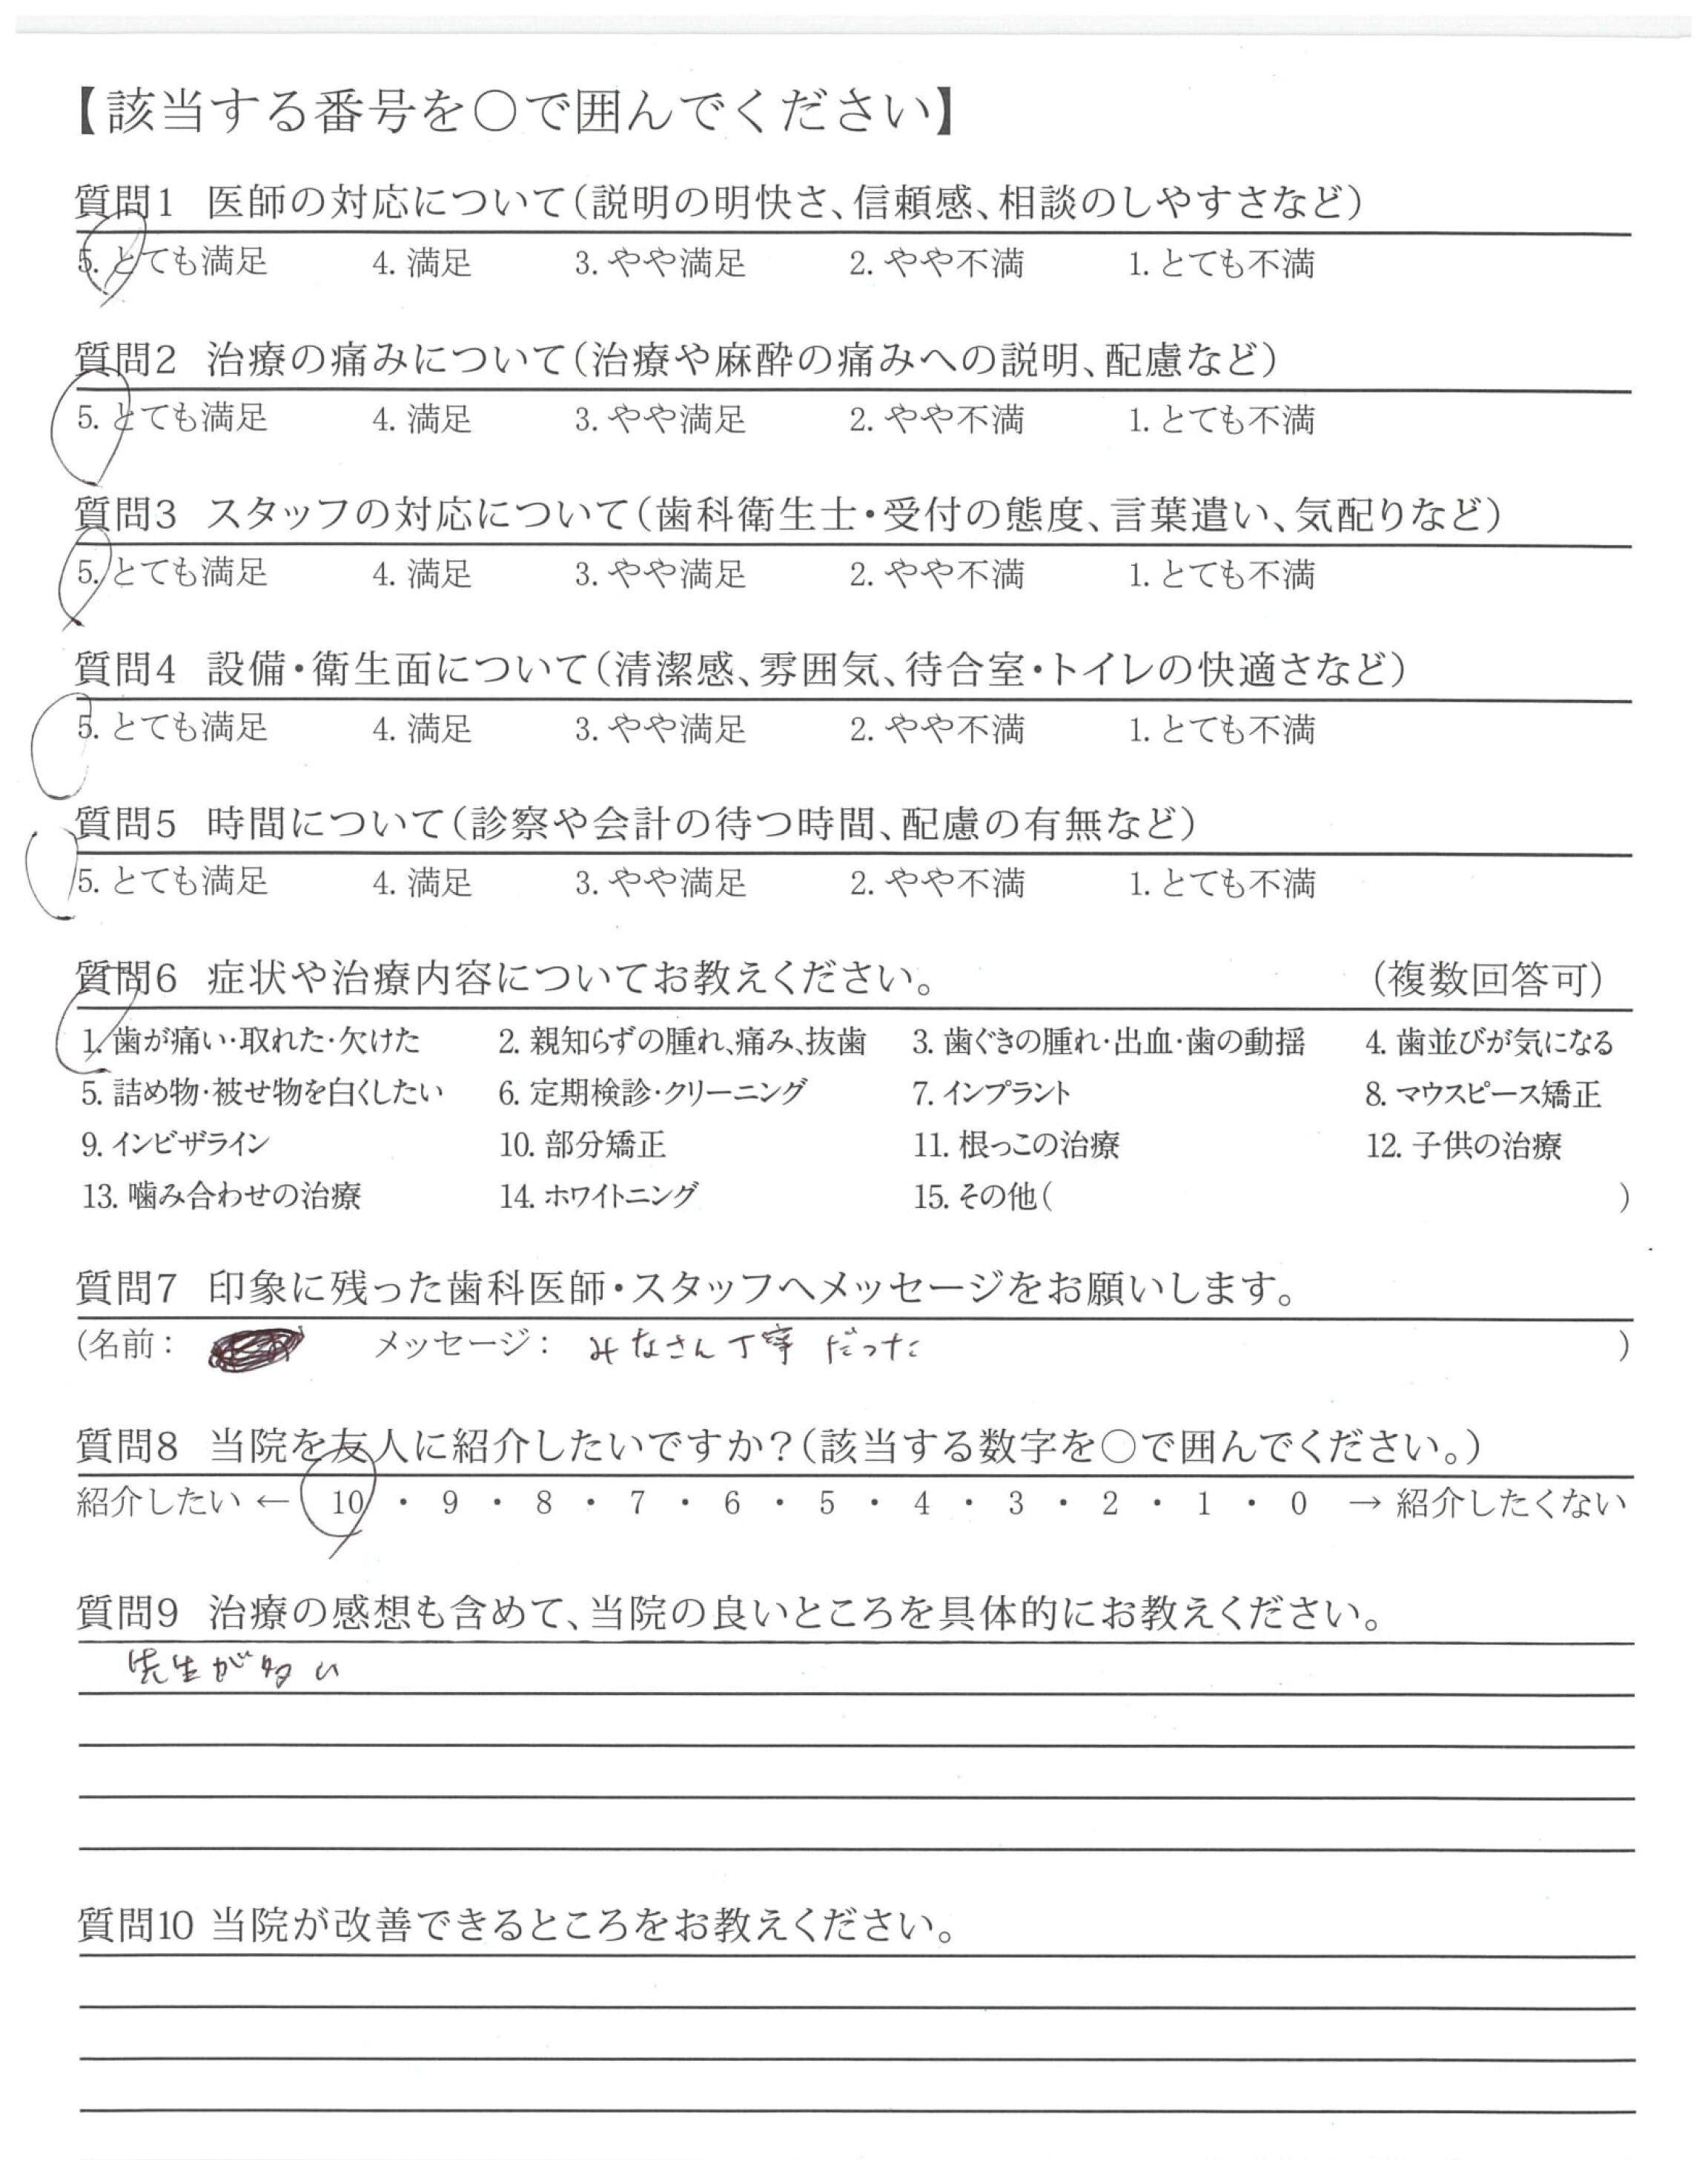 【該当する番号を○で囲んでください】
質問1 医師の対応について(説明の明快さ、信頼感、相談のしやすさなど)
5. とても満足 4. 満足 3. やや満足 2. やや不満 1. とても不満
質問2 治療の痛みについて(治療や麻酔の痛みへの説明、配慮など)
5. とても満足 4. 満足 3. やや満足 2. やや不満 1. とても不満
質問3 スタッフの対応について(歯科衛生士・受付の態度、言葉遣い、気配りなど)
5. とても満足 4. 満足 3. やや満足 2. やや不満 1. とても不満
質問4 設備・衛生面について(清潔感、雰囲気、待合室・トイレの快適さなど)
5. とても満足 4. 満足 3. やや満足 2. やや不満 1. とても不満
質問5 時間について(診察や会計の待つ時間、配慮の有無など)
5. とても満足 4. 満足 3. やや満足 2. やや不満 1. とても不満
質問6 症状や治療内容についてお教えください。 (複数回答可)
1. 歯が痛い・取れた・欠けた 2. 親知らずの腫れ、痛み、抜歯 3. 歯ぐきの腫れ・出血・歯の動揺 4. 歯並びが気になる
5. 詰め物・被せ物を白くしたい 6. 定期検診・クリーニング 7. インプラント 8. マウスピース矯正
9. インビザライン 10. 部分矯正 11. 根っこの治療 12. 子供の治療
13. 噛み合わせの治療 14. ホワイトニング 15. その他( )
質問7 印象に残った歯科医師・スタッフへメッセージをお願いします。
(名前: メッセージ: みなさん丁寧だった )
質問8 当院を友人に紹介したいですか?(該当する数字を○で囲んでください。)
紹介したい ← 10 ・ 9 ・ 8 ・ 7 ・ 6 ・ 5 ・ 4 ・ 3 ・ 2 ・ 1 ・ 0 → 紹介したくない
質問9 治療の感想も含めて、当院の良いところを具体的にお教えください。
先生が多い
質問10 当院が改善できるところをお教えください。